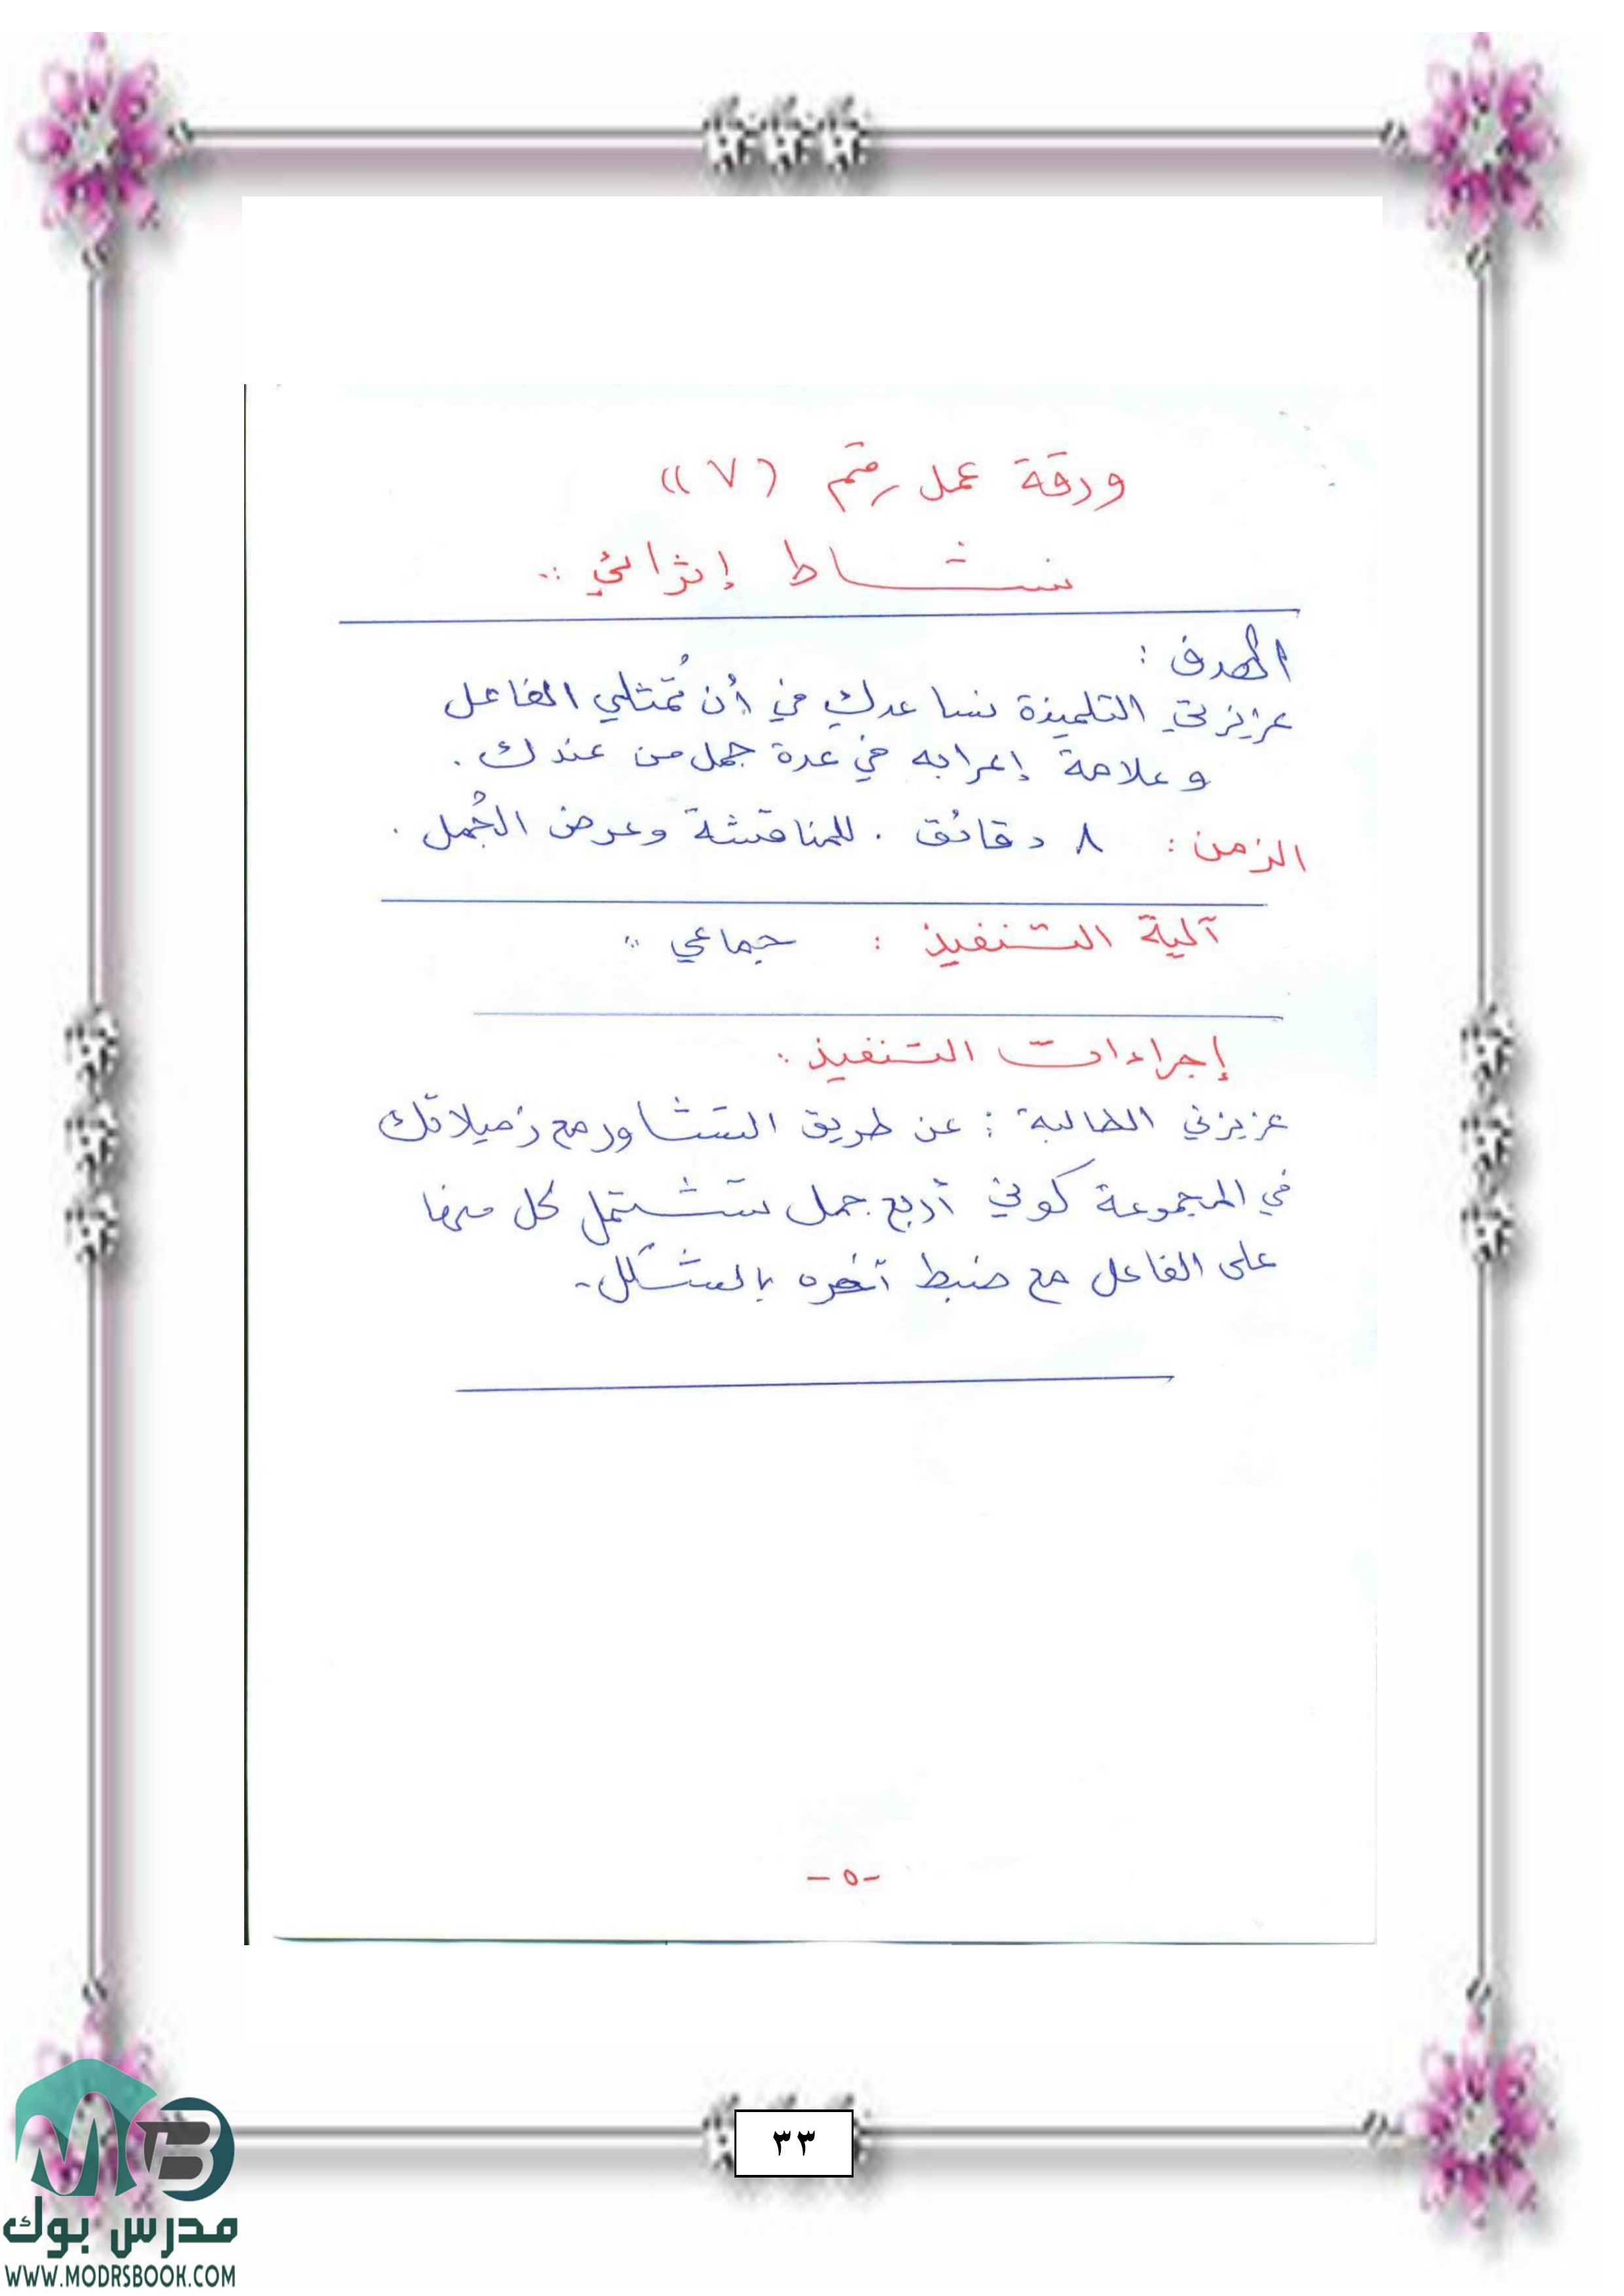 ورقة عمل رقم (٧))
نشاط إثرائي ..
الهدف :
عزيزتي التلميذة نساعدكِ في أن تُمثلي الفاعل
وعلامة إعرابه في عدة جمل من عندك .
الزمن : ٨ دقائق . للمناقشة وعرض الجُمل .
آلية التنفيذ : جماعي ..
إجراءات التنفيذ ..
عزيزتي الطالبة : عن طريق التشاور مع زميلاتك
في المجموعة كوني أربع جمل تشتمل كل منها
على الفاعل مع ضبط آخره بالشكل .
- ٥ -
٣٣
مدرس بوك
WWW.MODRSBOOK.COM